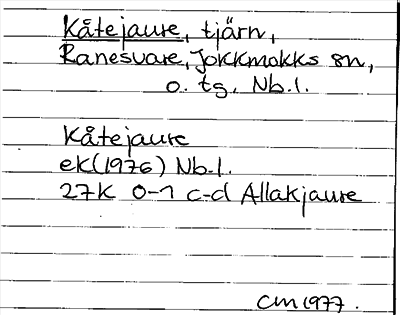 Kåtejaure, tjärn,
Ranesvare, Jokkmokks sn,
o. tg, Nb.l.
Kåtejaure
ek(1976) Nb.l.
27K 0-1 c-d Allakjaure
CM 1977.